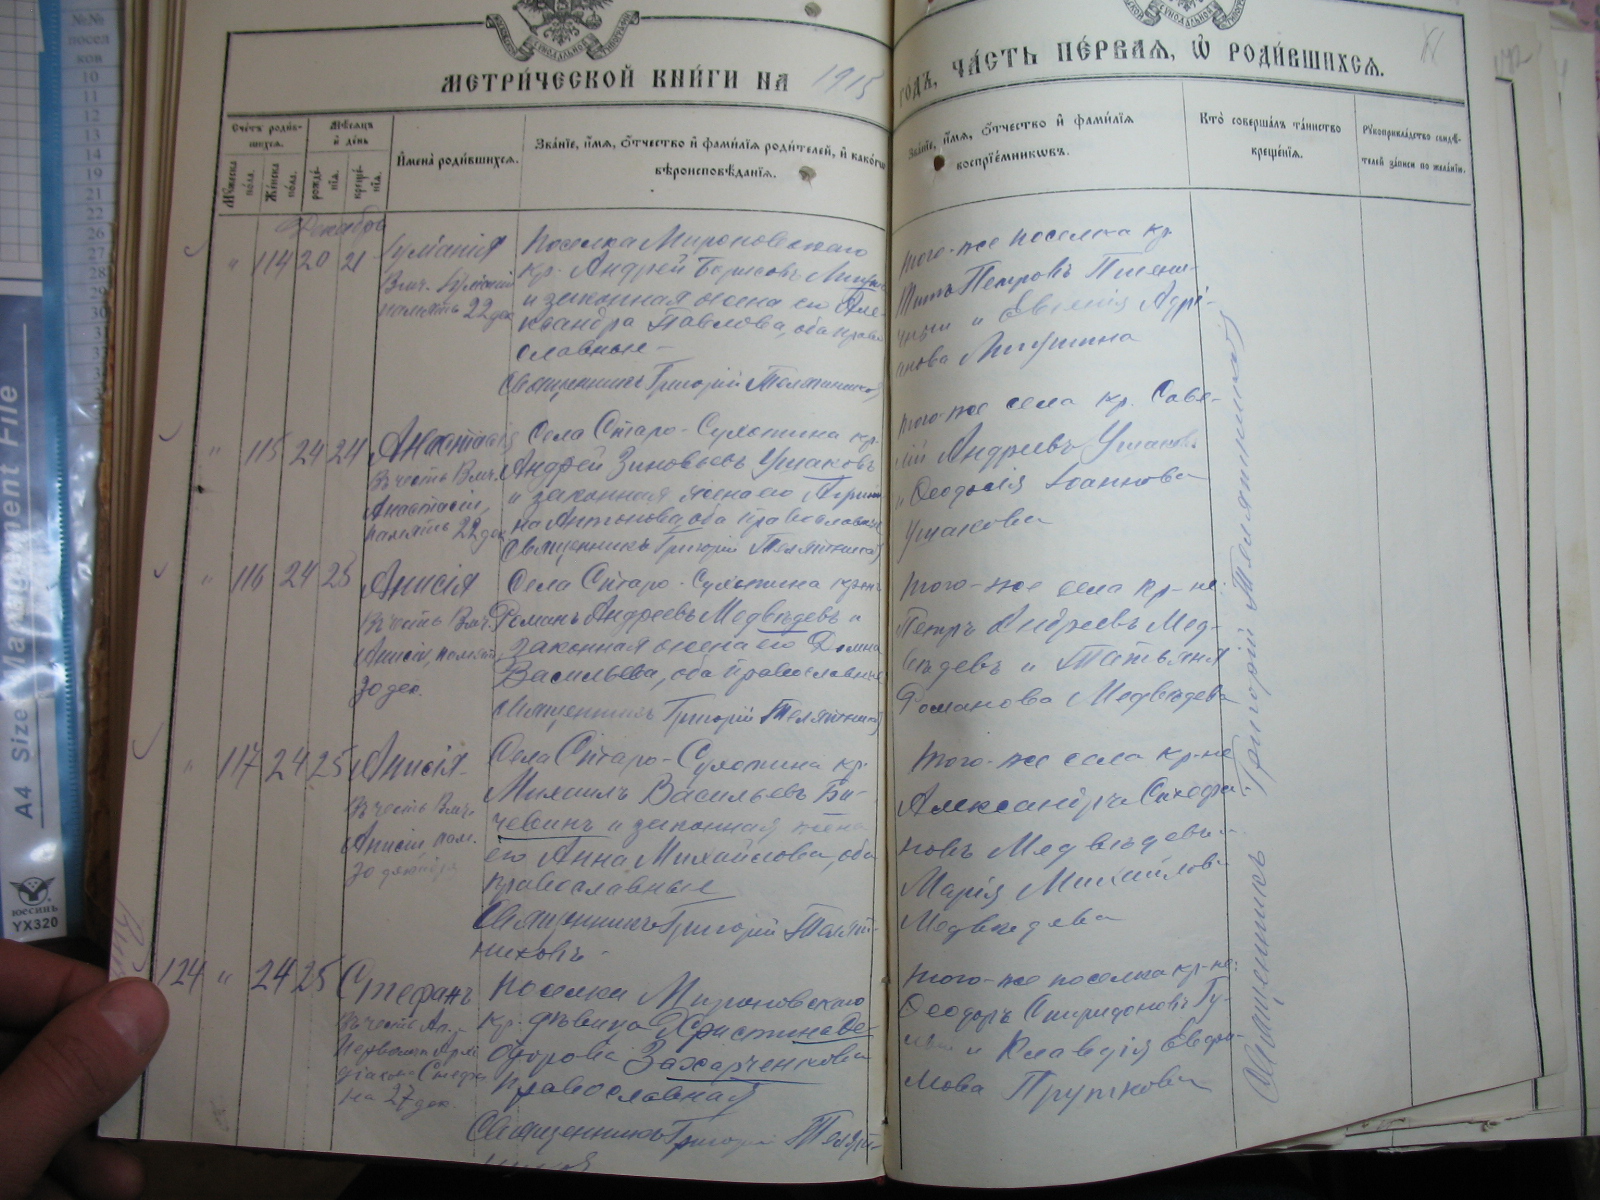 МЕТРИ́ЧЕСКОЙ КНИ́ГИ НА 1915
ГО́ДЪ, ЧА́СТЬ ПЕ́РВАЯ, Ѽ РОДИ́ВШИХСЯ.
Сче́тъ роди́в-
шихся.
Мꙋ́жеска
по́ла.
Же́нска
по́ла.
Мѣ́сяцъ
и҆ де́нь
рожде́-
нїя.
креще́-
нїя.
И҆мена̀ роди́вшихся.
Зва́нїе, и҆́мя, ѻ҆́тчество и҆ фами́лїя роди́телей, и҆ како́гѡ
вѣроисповѣ́данїя.
Зва́нїе, и҆́мя, ѻ҆́тчество и҆ фами́лїя
воспрїе́мникѡвъ.
Кто̀ соверша́лъ та́инство
креще́нїя.
Рꙋкоприкла́дство свидѣ́-
телей за́писи по жела́нїю.
Декабрь
" 114 20 21
Вмч.
память 22 дек.
Поселка Мироновскаго
кр. Андрей Борисовъ
и законная жена его Але-
ксандра Павлова, оба право-
славные
Священникъ Григорій Телятниковъ
того-же поселка кр.
Титъ Петровъ
и Евгенія Адрі-
анова
" 115 24 24 Анастасія
Въ честь Вмч.
Анастасіи,
память 22 дек.
Села Старо-Сухотина кр.
Андрей Зиновьевъ Ушаковъ
и законная жена его
Антонова, оба православные
Священникъ Григорій Телятниковъ
того-же села кр. Саве-
лій Андреевъ Ушаковъ
и Ѳеодосія Іоаннова
Ушакова
" 116 24 25 Анисія
Въ честь Вмч.
Анисіи, память
30 дек.
Села Старо-Сухотина кр-нъ
Романъ Андреевъ Медвѣдевъ и
законная жена его Домна
Васильева, оба православные
Священникъ Григорій Телятниковъ
того-же села кр-не:
Петръ Андреевъ Мед-
вѣдевъ и Татьяна
Романова Медвѣдева
" 117 24 25 Анисія
Въ честь Вмч.
Анисіи, пам.
30 декабря
Села Старо-Сухотина кр.
Михаилъ Васильевъ Би-
чевинъ и законная жена
его Анна Михайлова, оба
православные
Священникъ Григорій Телят-
никовъ
того-же села кр-не
Александръ
новъ Медвѣдевъ и
Марія Михайлова
Медвѣдева
124 " 24 25 Стефанъ
Въ честь Ап.,
Первомуч. Архи-
діакона Стефа-
на 27 дек.
Поселка Мироновскаго
кр. дѣвица Христина Ѳе-
одорова Захарченкова
православная
Священникъ Григорій Телят-
никовъ
того-же поселка кр-не:
Ѳеодоръ Спиридоновъ
и Клавдія
Пруткова
Священникъ Григорій Телятниковъ
№№
посел
ков
10
11
12
13
14
19
21
22
26
27
28
29
30
31
A4 Size Management File
юесинъ
YX320